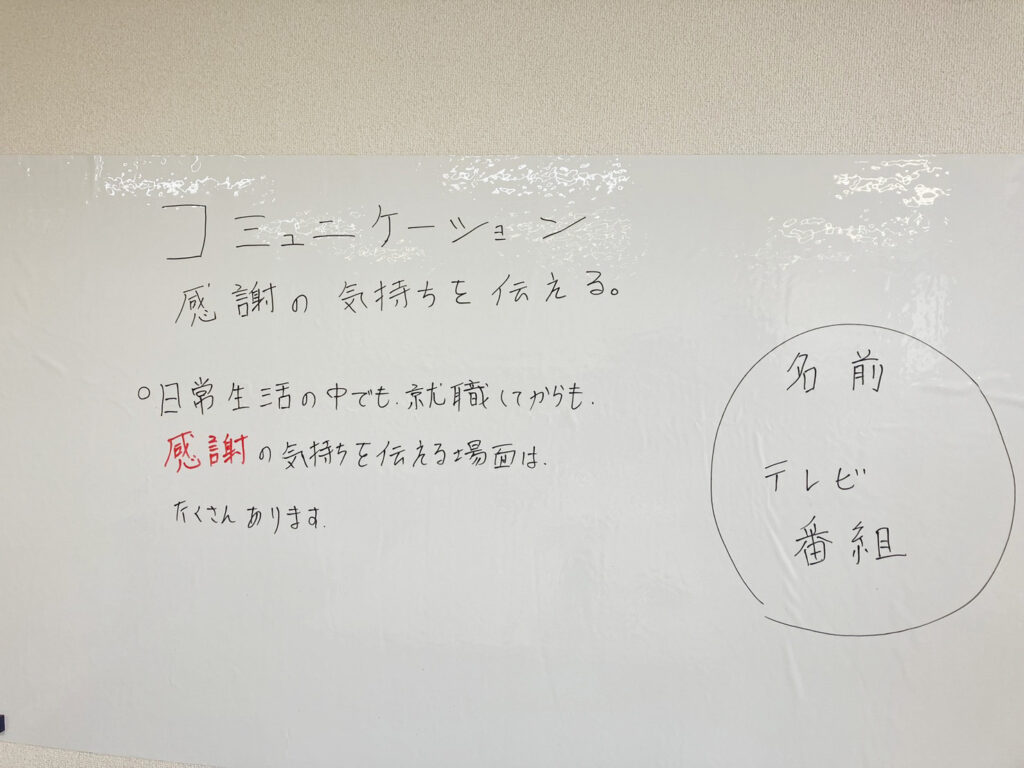 コミュニケーション
感謝の気持ちを伝える。
○日常生活の中でも、就職してからも、
感謝の気持ちを伝える場面は、
たくさんあります。
名前
テレビ
番組